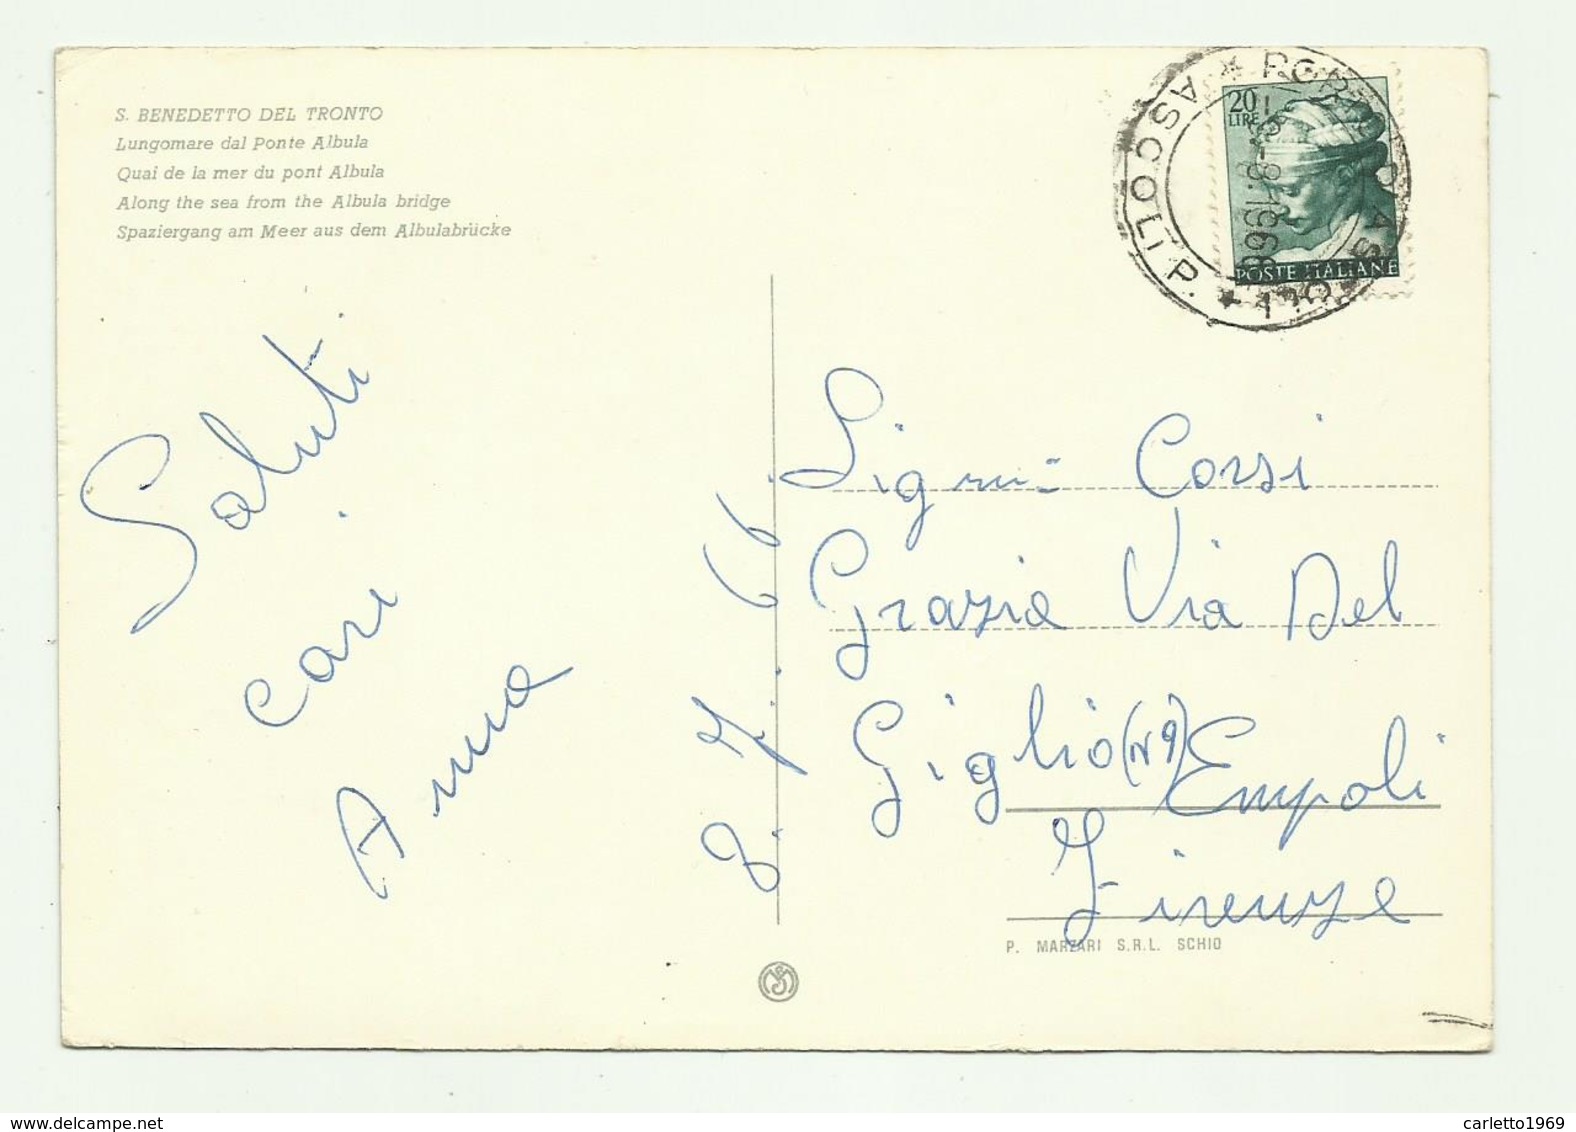 S. BENEDETTO DEL TRONTO
Lungomare dal Ponte Albula
Quai de la mer du pont Albula
Along the sea from the Albula bridge
Spaziergang am Meer aus dem Albulabrücke
20
LIRE
POSTE ITALIANE
PORTO D'ASCOLI * ASCOLI P. *
-8.1966
Saluti
cari
Anna
8. 7. 66.
Corsi
Grazia Via Del
Giglio (N 9) Empoli
Firenze
P. MARZARI S.R.L. SCHIO
www.delcampe.net
carletto1969